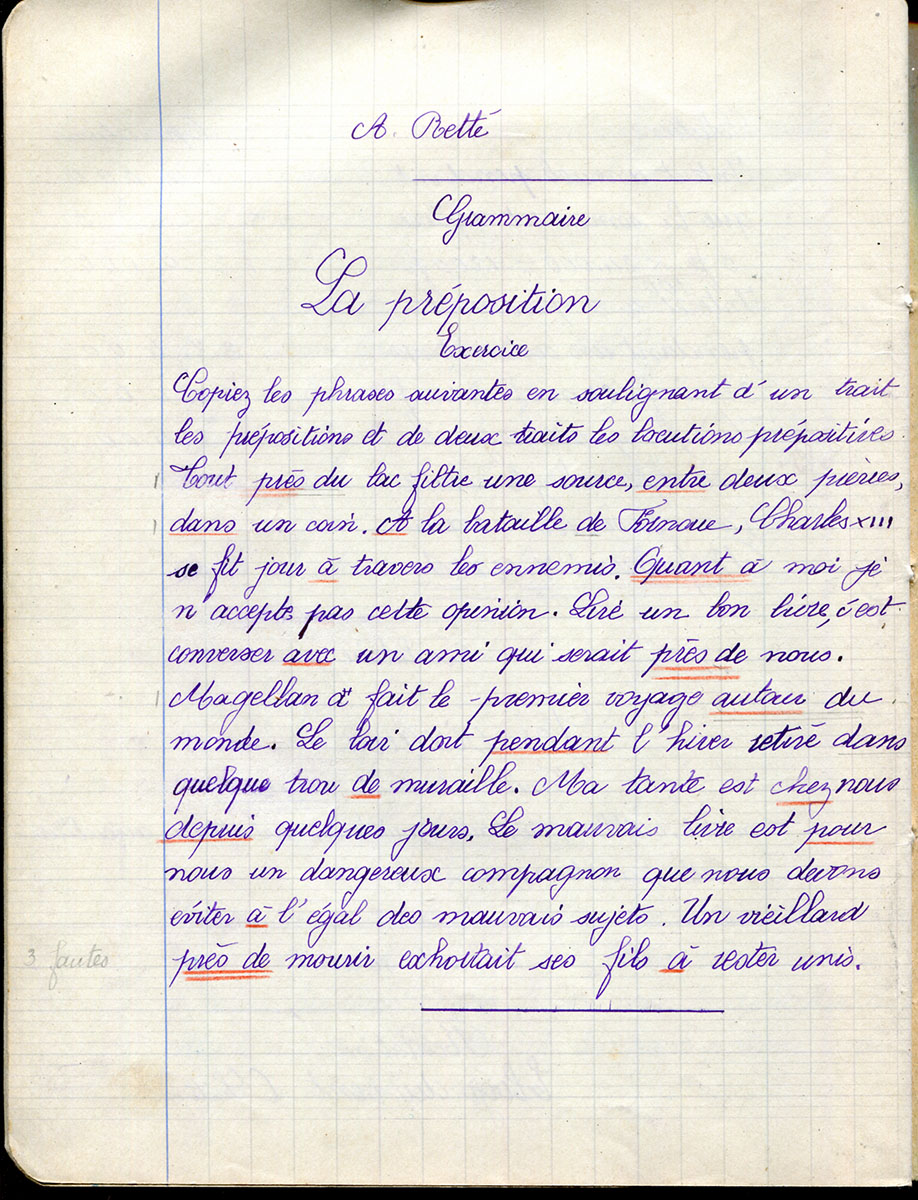 A. Retté
Grammaire
La préposition
Exercice
Copiez les phrases suivantes en soulignant d'un trait
les prépositions et de deux traits les locutions prépositives
Tout près du lac filtre une source, entre deux pierres,
dans un coin. A la bataille de Fornoue, Charles XIII
se fit jour à travers les ennemis. Quant à moi je
n'accepte pas cette opinion. Lire un bon livre, c'est
converser avec un ami qui serait près de nous.
Magellan a fait le premier voyage autour du
monde. Le loir dort pendant l'hiver retiré dans
quelque trou de muraille. Ma tante est chez nous
depuis quelques jours. Le mauvais livre est pour
nous un dangereux compagnon que nous devons
éviter à l'égal des mauvais sujets. Un vieillard
3 fautes près de mourir exhortait ses fils à rester unis.